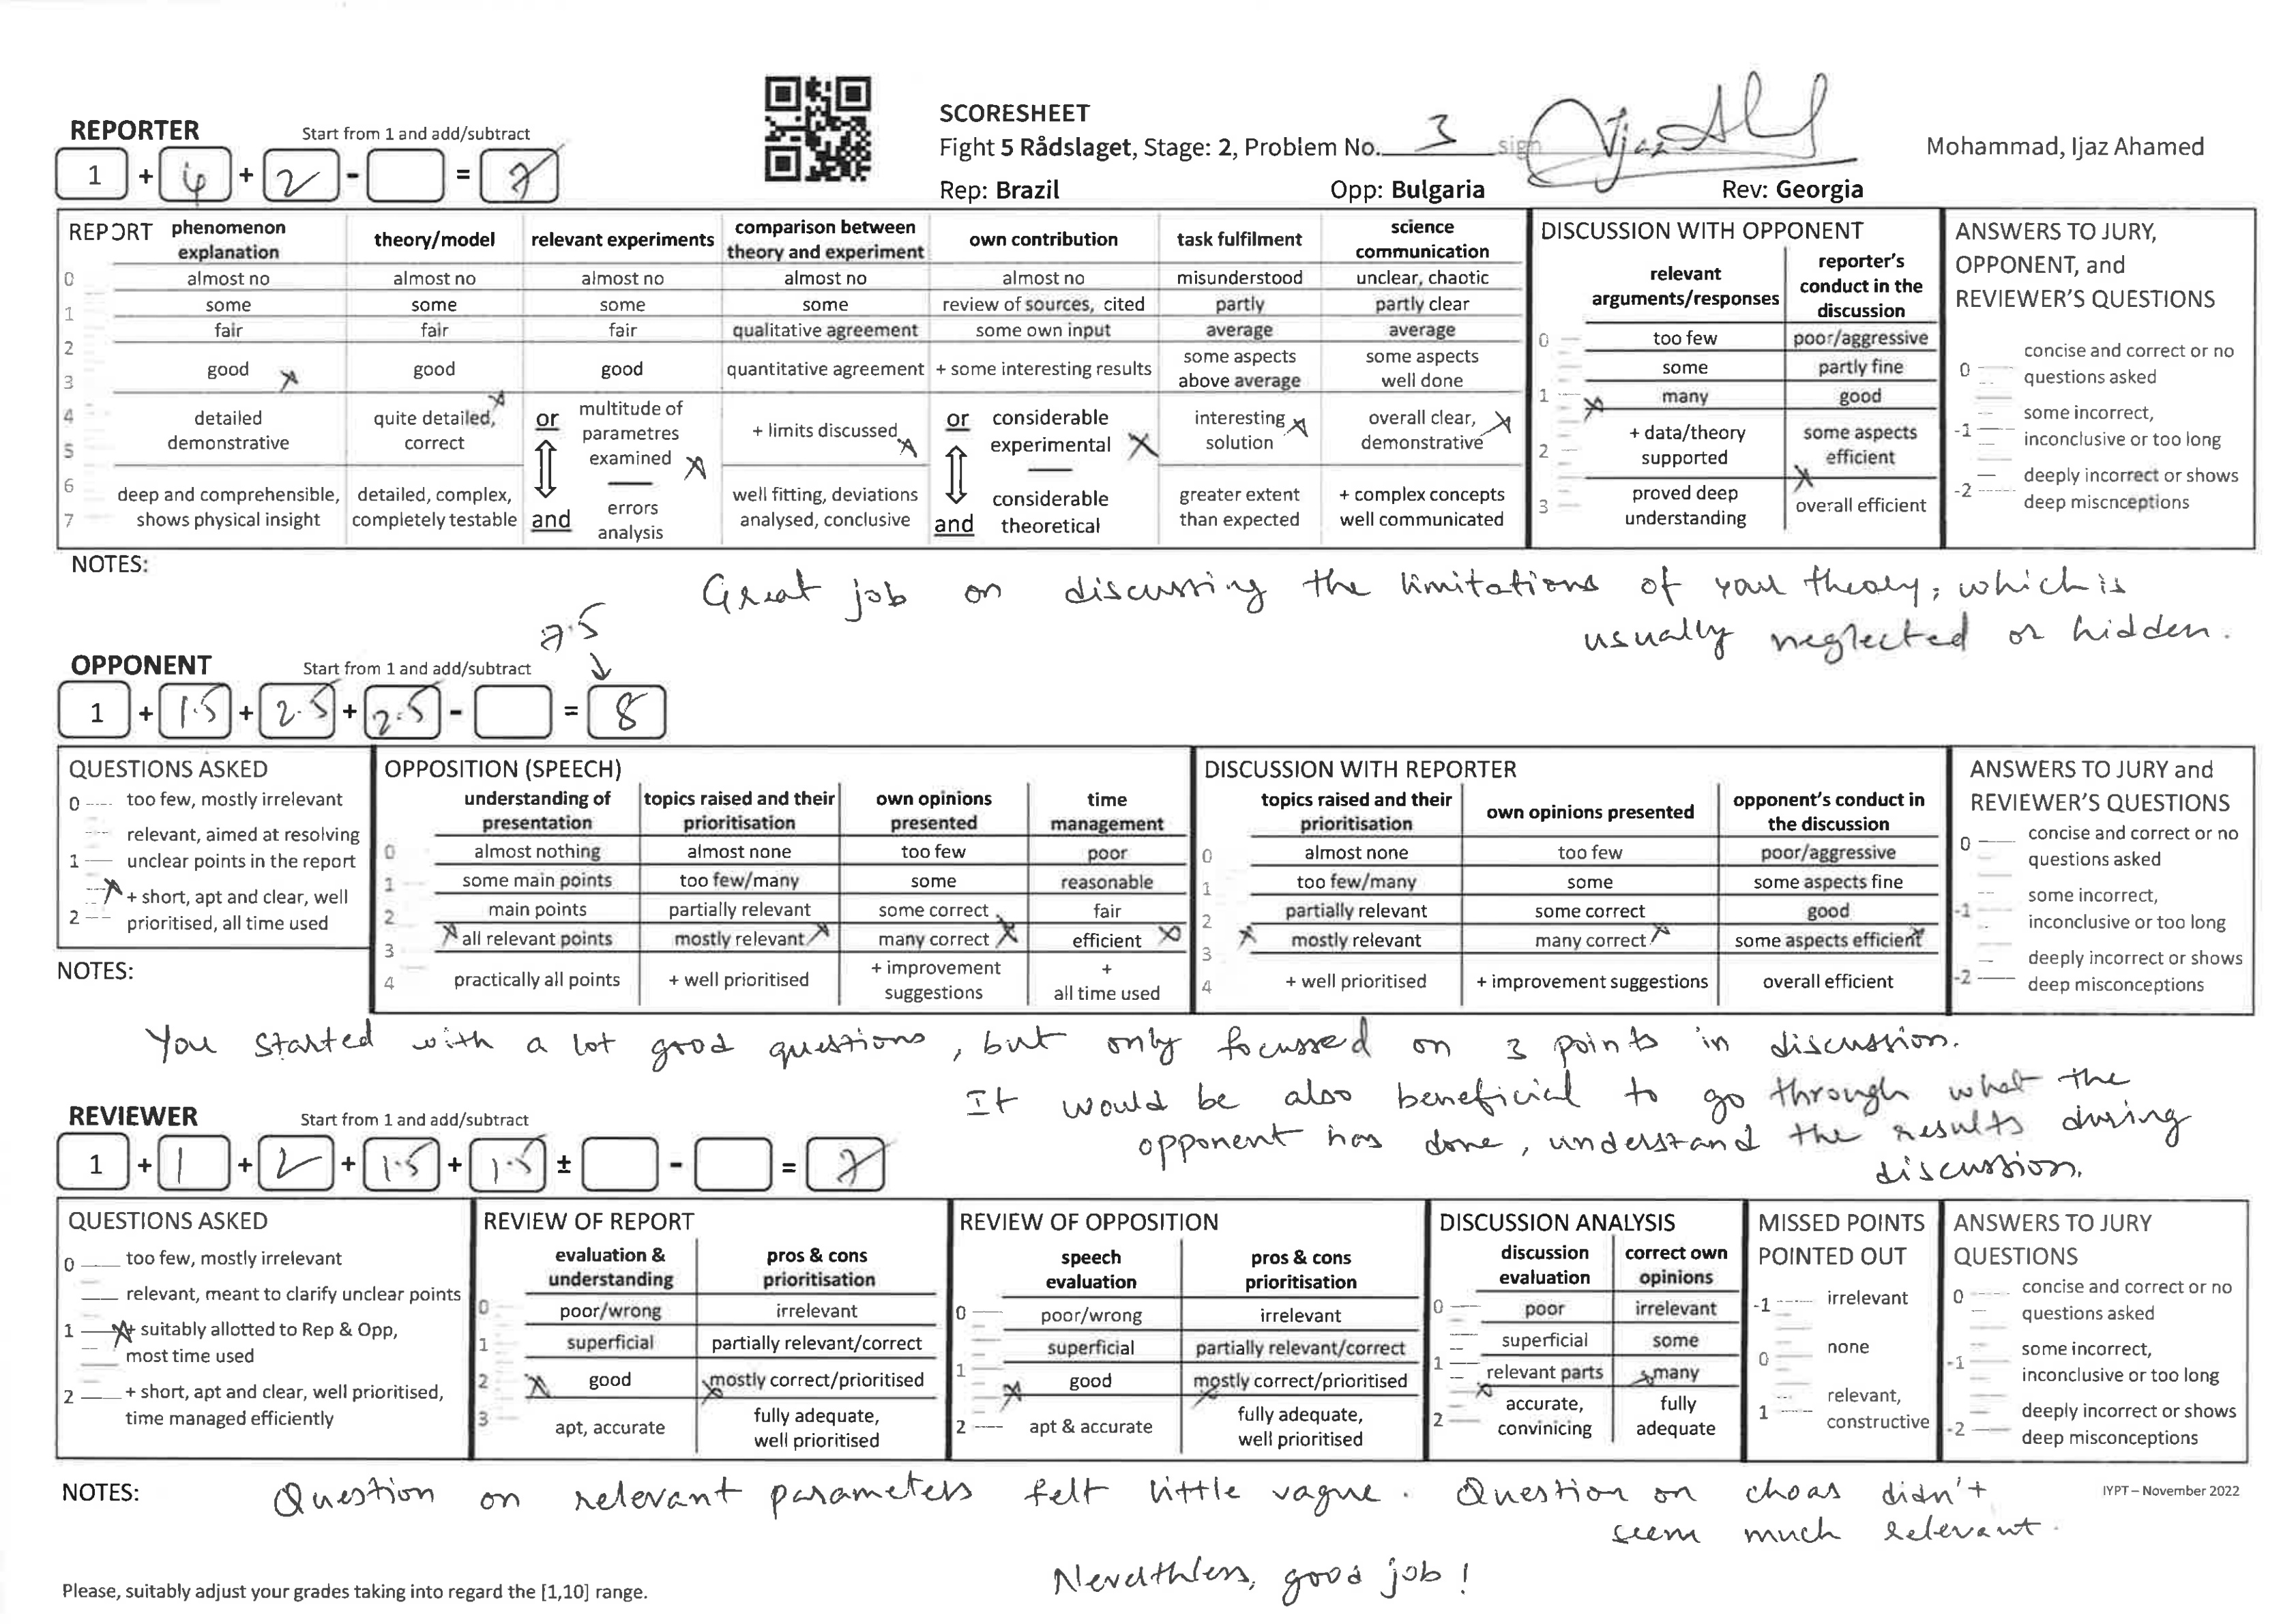 SCORESHEET
REPORTER Start from 1 and add/subtract
Fight 5 Rådslaget, Stage: 2, Problem No. 3 sign Mohammad, Ijaz Ahamed
1 + 4 + 2 - = 7
Rep: Brazil Opp: Bulgaria Rev: Georgia
REPORT
phenomenon explanation
theory/model
relevant experiments
comparison between theory and experiment
own contribution
task fulfilment
science communication
0 almost no almost no almost no almost no almost no misunderstood unclear, chaotic
1 some some some some review of sources, cited partly partly clear
fair fair fair qualitative agreement some own input average average
2
3 good good good quantitative agreement + some interesting results some aspects above average some aspects well done
4 detailed demonstrative quite detailed, correct or multitude of parametres examined + limits discussed or considerable experimental interesting solution overall clear, demonstrative
5
6 deep and comprehensible, shows physical insight detailed, complex, completely testable and errors analysis well fitting, deviations analysed, conclusive and considerable theoretical greater extent than expected + complex concepts well communicated
7
DISCUSSION WITH OPPONENT
relevant arguments/responses reporter's conduct in the discussion
0 too few poor/aggressive
some partly fine
1 many good
2 + data/theory supported some aspects efficient
3 proved deep understanding overall efficient
ANSWERS TO JURY,
OPPONENT, and
REVIEWER'S QUESTIONS
0 concise and correct or no questions asked
-1 some incorrect, inconclusive or too long
-2 deeply incorrect or shows deep miscnceptions
NOTES:
Great job on discussing the limitations of your theory, which is
usually neglected or hidden.
7.5
OPPONENT Start from 1 and add/subtract
1 + 1.5 + 2.5 + 2.5 - = 8
QUESTIONS ASKED
0 too few, mostly irrelevant
relevant, aimed at resolving
1 unclear points in the report
+ short, apt and clear, well
2 prioritised, all time used
OPPOSITION (SPEECH)
understanding of presentation topics raised and their prioritisation own opinions presented time management
0 almost nothing almost none too few poor
1 some main points too few/many some reasonable
2 main points partially relevant some correct fair
3 all relevant points mostly relevant many correct efficient
4 practically all points + well prioritised + improvement suggestions + all time used
DISCUSSION WITH REPORTER
topics raised and their prioritisation own opinions presented opponent's conduct in the discussion
0 almost none too few poor/aggressive
1 too few/many some some aspects fine
2 partially relevant some correct good
3 mostly relevant many correct some aspects efficient
4 + well prioritised + improvement suggestions overall efficient
ANSWERS TO JURY and
REVIEWER'S QUESTIONS
0 concise and correct or no questions asked
-1 some incorrect, inconclusive or too long
-2 deeply incorrect or shows deep misconceptions
NOTES:
You started with a lot good questions, but only focussed on 3 points in discussion.
It would be also beneficial to go through what the
opponent has done, understand the results during
discussion.
REVIEWER Start from 1 and add/subtract
1 + 1 + 2 + 1.5 + 1.5 ± - = 7
QUESTIONS ASKED
0 too few, mostly irrelevant
relevant, meant to clarify unclear points
1 + suitably allotted to Rep & Opp,
most time used
2 + short, apt and clear, well prioritised,
time managed efficiently
REVIEW OF REPORT
evaluation & understanding pros & cons prioritisation
0 poor/wrong irrelevant
1 superficial partially relevant/correct
2 good mostly correct/prioritised
3 apt, accurate fully adequate, well prioritised
REVIEW OF OPPOSITION
speech evaluation pros & cons prioritisation
0 poor/wrong irrelevant
superficial partially relevant/correct
1 good mostly correct/prioritised
2 apt & accurate fully adequate, well prioritised
DISCUSSION ANALYSIS
discussion evaluation correct own opinions
0 poor irrelevant
superficial some
1 relevant parts many
2 accurate, convinicing fully adequate
MISSED POINTS
POINTED OUT
-1 irrelevant
0 none
1 relevant, constructive
ANSWERS TO JURY
QUESTIONS
0 concise and correct or no questions asked
-1 some incorrect, inconclusive or too long
-2 deeply incorrect or shows deep misconceptions
NOTES:
Question on relevant parameters felt little vague. Question on choas didn't
seem much relevant.
IYPT – November 2022
Neverthless, good job!
Please, suitably adjust your grades taking into regard the [1,10] range.